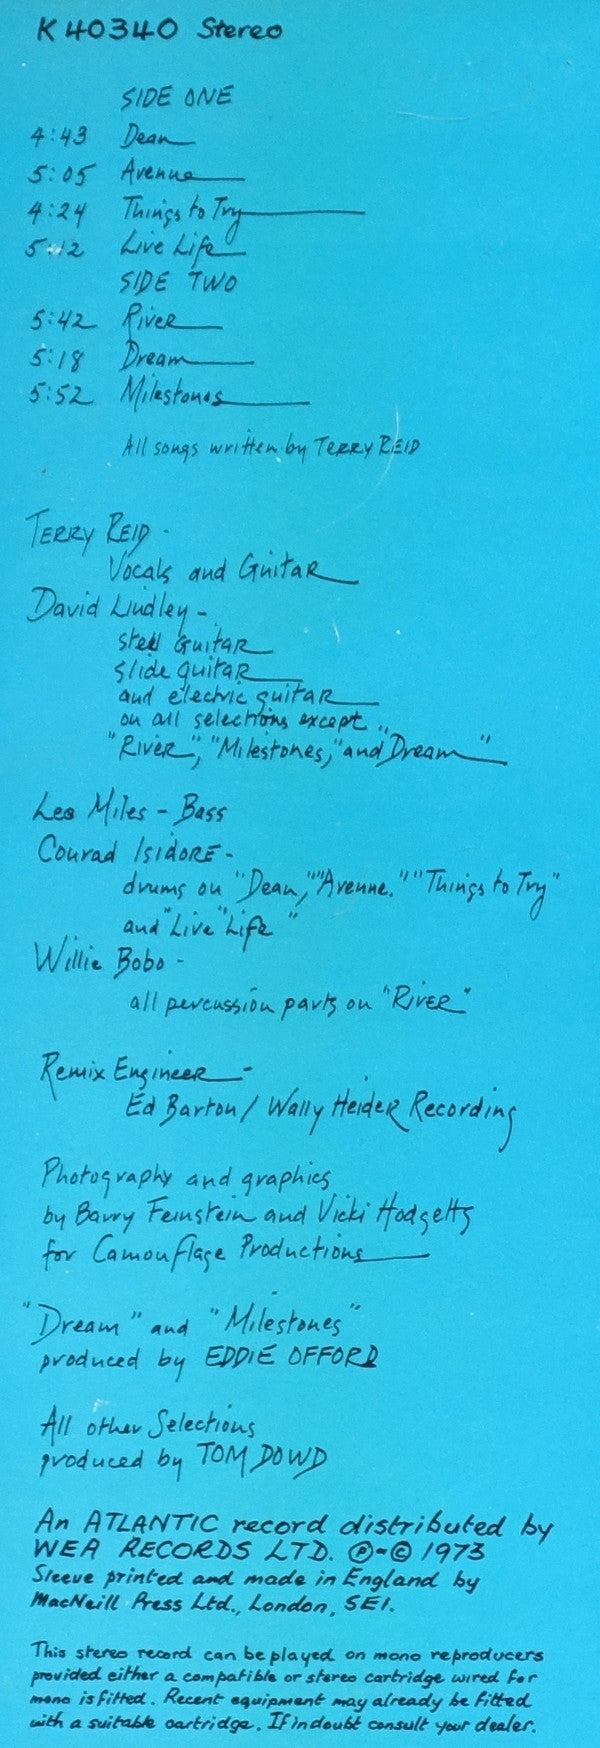 K 40340 Stereo
SIDE ONE
4:43 Dean
5:05 Avenue
4:24 Things to Try
5:12 Live Life
SIDE TWO
5:42 River
5:18 Dream
5:52 Milestones
All songs written by TERRY REID
TERRY REID -
Vocals and Guitar
David Lindley -
steel guitar
slide guitar
and electric guitar
on all selections except
"River", "Milestones," and "Dream"
Leo Miles - Bass
Conrad Isidore -
drums on "Dean," "Avenue." "Things to Try"
and "Live" Life"
Willie Bobo -
all percussion parts on "River"
Remix Engineer -
Ed Barton / Wally Heider Recording
Photography and graphics
by Barry Feinstein and Vicki Hodgetts
for Camouflage Productions
"Dream" and "Milestones"
produced by EDDIE OFFORD
All other Selections
produced by TOM DOWD
An ATLANTIC record distributed by
WEA RECORDS LTD. ℗-© 1973
Sleeve printed and made in England by
MacNeill Press Ltd., London, SE1.
This stereo record can be played on mono reproducers
provided either a compatible or stereo cartridge wired for
mono is fitted. Recent equipment may already be fitted
with a suitable cartridge. If in doubt consult your dealer.